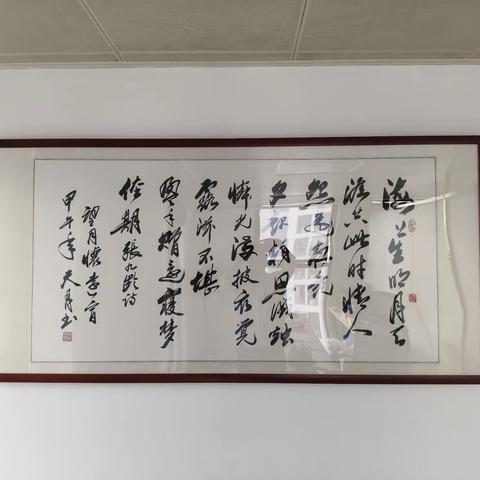 海上生明月天
涯共此时情人
怨遥夜竟
夕起相思滅烛
憐光满披衣覺
露滋不堪
盈手赠还寝梦
佳期 張九龄诗
望月懷
甲午年 天月书